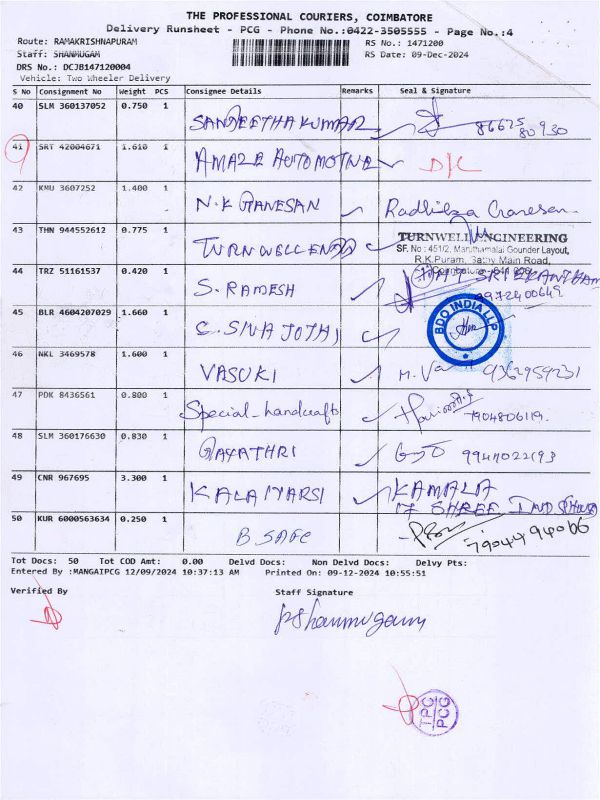 THE PROFESSIONAL COURIERS, COIMBATORE
Delivery Runsheet - PCG - Phone No.:0422-3505555 - Page No.:4
Route: RAMAKRISHNAPURAM RS No.: 1471200
Staff: SHANMUGAM RS Date: 09-Dec-2024
DRS No.: DCJB147120004
Vehicle: Two Wheeler Delivery
S No Consignment No Weight PCS Consignee Details Remarks Seal & Signature
40 SLM 360137052 0.750 1 SANGEETHA KUMAR 86675 80930
41 SRT 42004671 1.610 1 AMAZE AUTOMOTIVE D/C
42 KMU 3607252 1.400 1 N.K GANESAN Radhika Ganesan
43 THN 944552612 0.775 1 TURNWELL ENGG
TURNWELL ENGINEERING
SF. No : 451/2, Maruthamalai Gounder Layout,
R.K.Puram, Sathy Main Road,
Coimbatore - 641 006
44 TRZ 51161537 0.420 1 S. RAMESH
45 BLR 4604207029 1.660 1 C. SIVA JOTHI BDO INDIA LLP
46 NKL 3469578 1.600 1 VASUKI 9362959231
47 PDK 8436561 0.800 1 Special-handcrafts 7904806119
48 SLM 360176630 0.830 1 GAYATHRI
49 CNR 967695 3.300 1 KALAIYARSI KAMALA
SHREE
50 KUR 6000563634 0.250 1 B SAFE 7904494066
Tot Docs: 50 Tot COD Amt: 0.00 Delvd Docs: Non Delvd Docs: Delvy Pts:
Entered By :MANGAIPCG 12/09/2024 10:37:13 AM Printed On: 09-12-2024 10:55:51
Verified By Staff Signature
PShanmugam
TPC
PCG